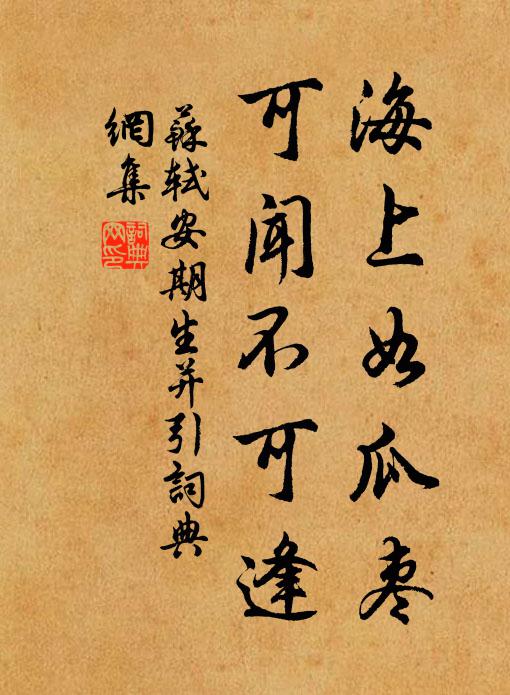 海上如瓜枣
可闻不可逢
蘇軾安期生并引詞典
網集
詞典網印